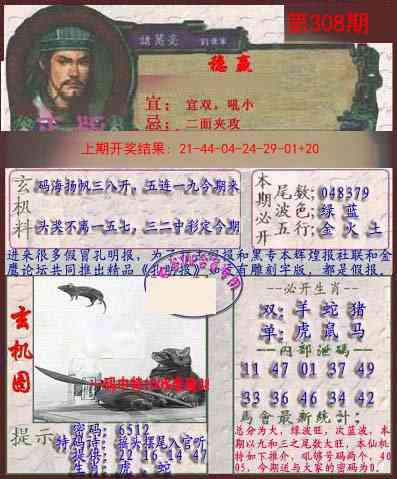 第308期
諸葛亮
稳赢
宜：宜双，吼小
忌：二面夹攻
上期开奖结果：21-44-04-24-29-01+20
玄机料
码海扬帆三八开，五连一九今期来
头奖不离一五七，三二寸彩定今期
本期必开
尾数:048379
波色:绿 蓝
五行:金 火 土
进来很多假冒孔明报，为了
报和黑专本辉煌报社联和金
鹰论坛共同推出精品《孔明报》
有雕刻字版，都是假报。
玄机图
--必开生肖--
双:羊 蛇 猪
单:虎 鼠 马
--内部泄码--
11 47 01 37 49
33 36 46 34 42
马會最新統计:
总分为大，绿波旺，次蓝波，本
期以九和三之尾数大旺，本仙机
特如下推介，吼够号码两个，40
05，今期送与大家的密码为0.
提示
密码: 6512
特码诗: 接头摆尾入官听
提供: 22 16 14 47
生肖: 虎、蛇